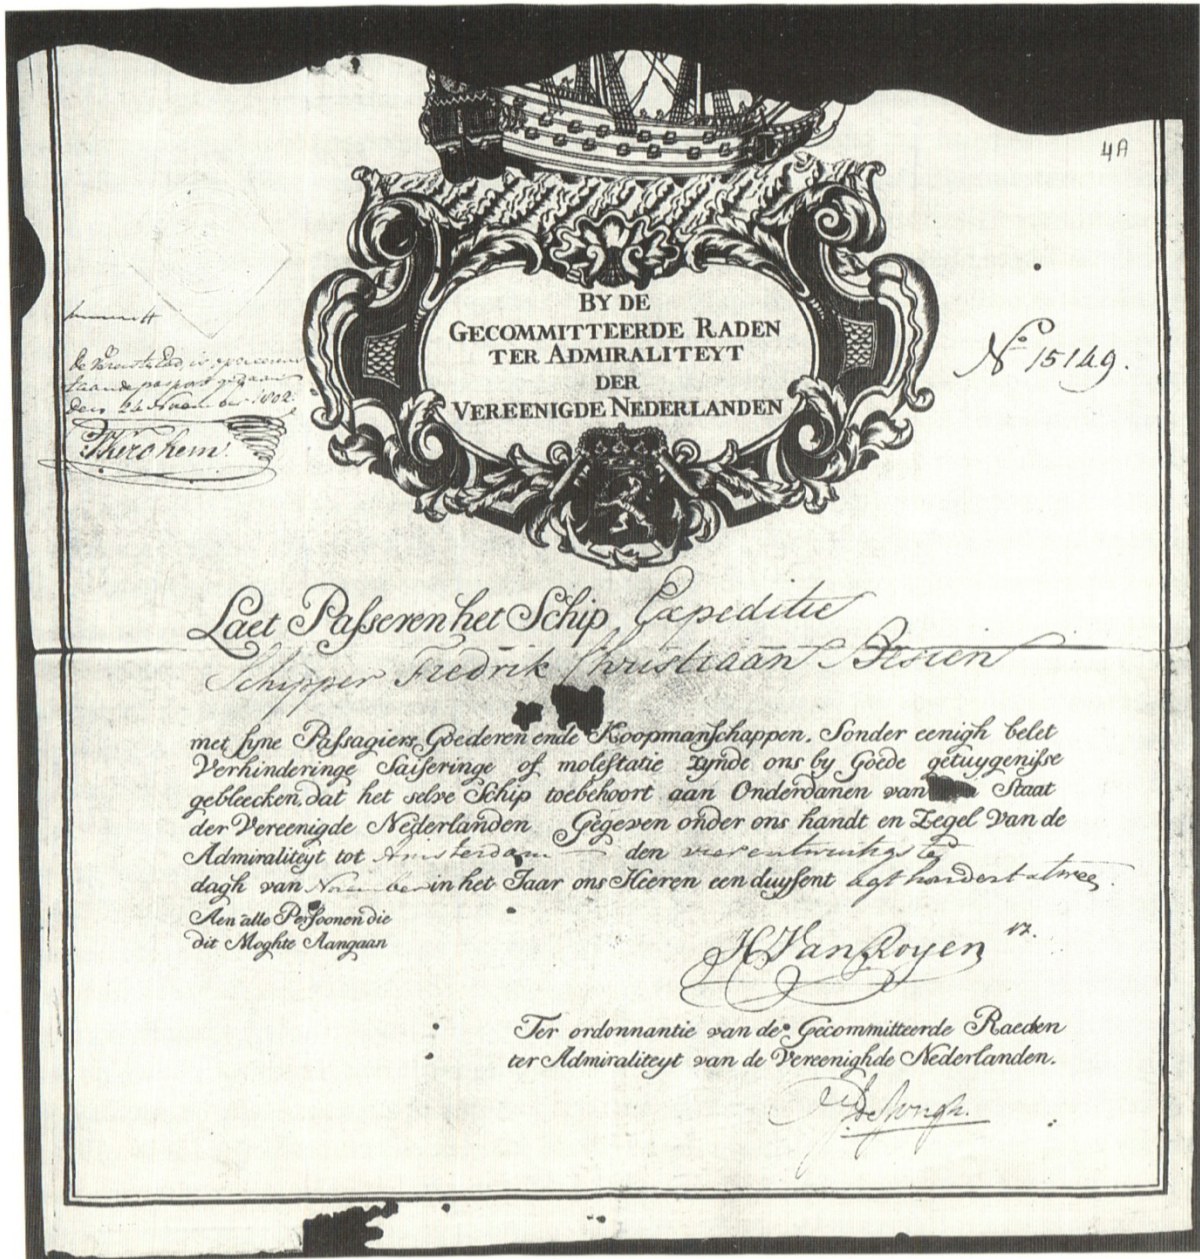 4A
BY DE
GECOMMITTEERDE RADEN
TER ADMIRALITEYT
DER
VEREENIGDE NEDERLANDEN
No 15149.
den 24 November 1802
Laet Passeren het Schip Expeditie
Schipper Fredrik Christiaan
met syne Passagiers, Goederen ende Koopmanschappen, Sonder eenigh belet
Verhinderinge Saiseringe of molestatie zynde ons by Goede getuygenisse
gebleecken, dat het selve Schip toebehoort aan Onderdanen van Staat
der Vereenigde Nederlanden Gegeven onder ons handt en Zegel van de
Admiraliteyt tot Amsterdam den vierentwintigste
dagh van November in het Jaar ons Heeren een duysent agt hondert twee
Aen alle Persoonen die
dit Moghte Aangaan
H Van Royen
Ter ordonnantie van de Gecommitteerde Raeden
ter Admiraliteyt van de Vereenighde Nederlanden.
de Jongh.